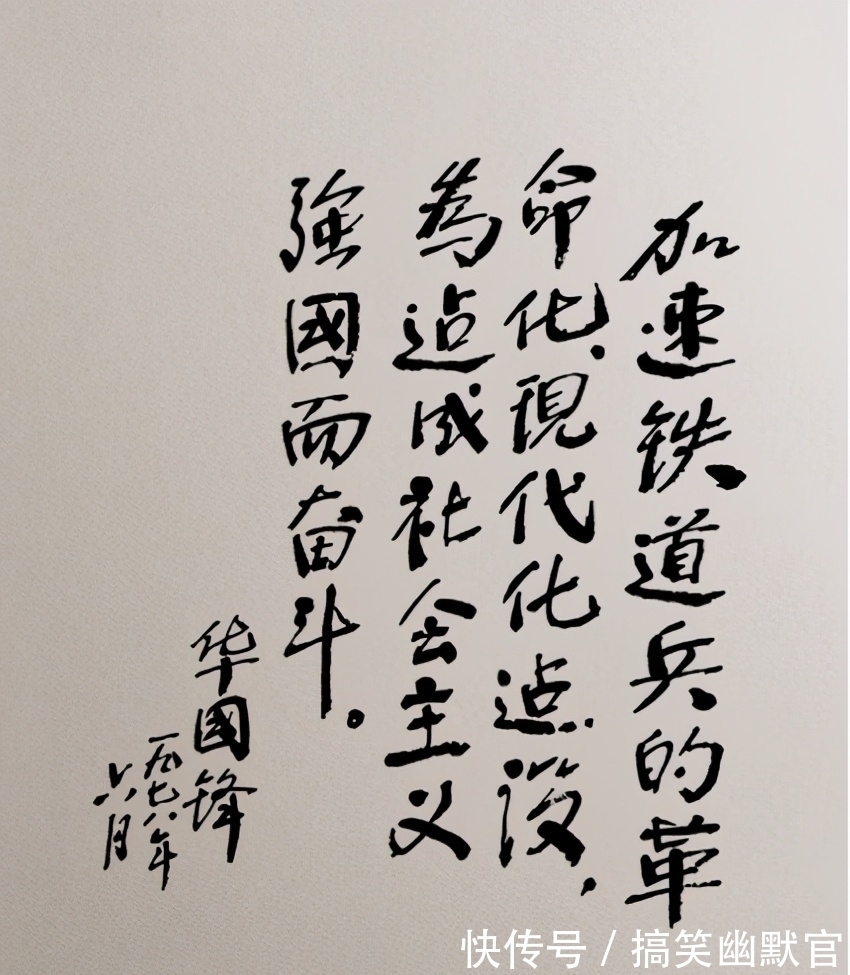 加速铁道兵的革
命化、現代化迠设，
為迠成社会主义
強國而奋斗。
华國锋
一九七八年
六月
快传号 / 搞笑幽默官